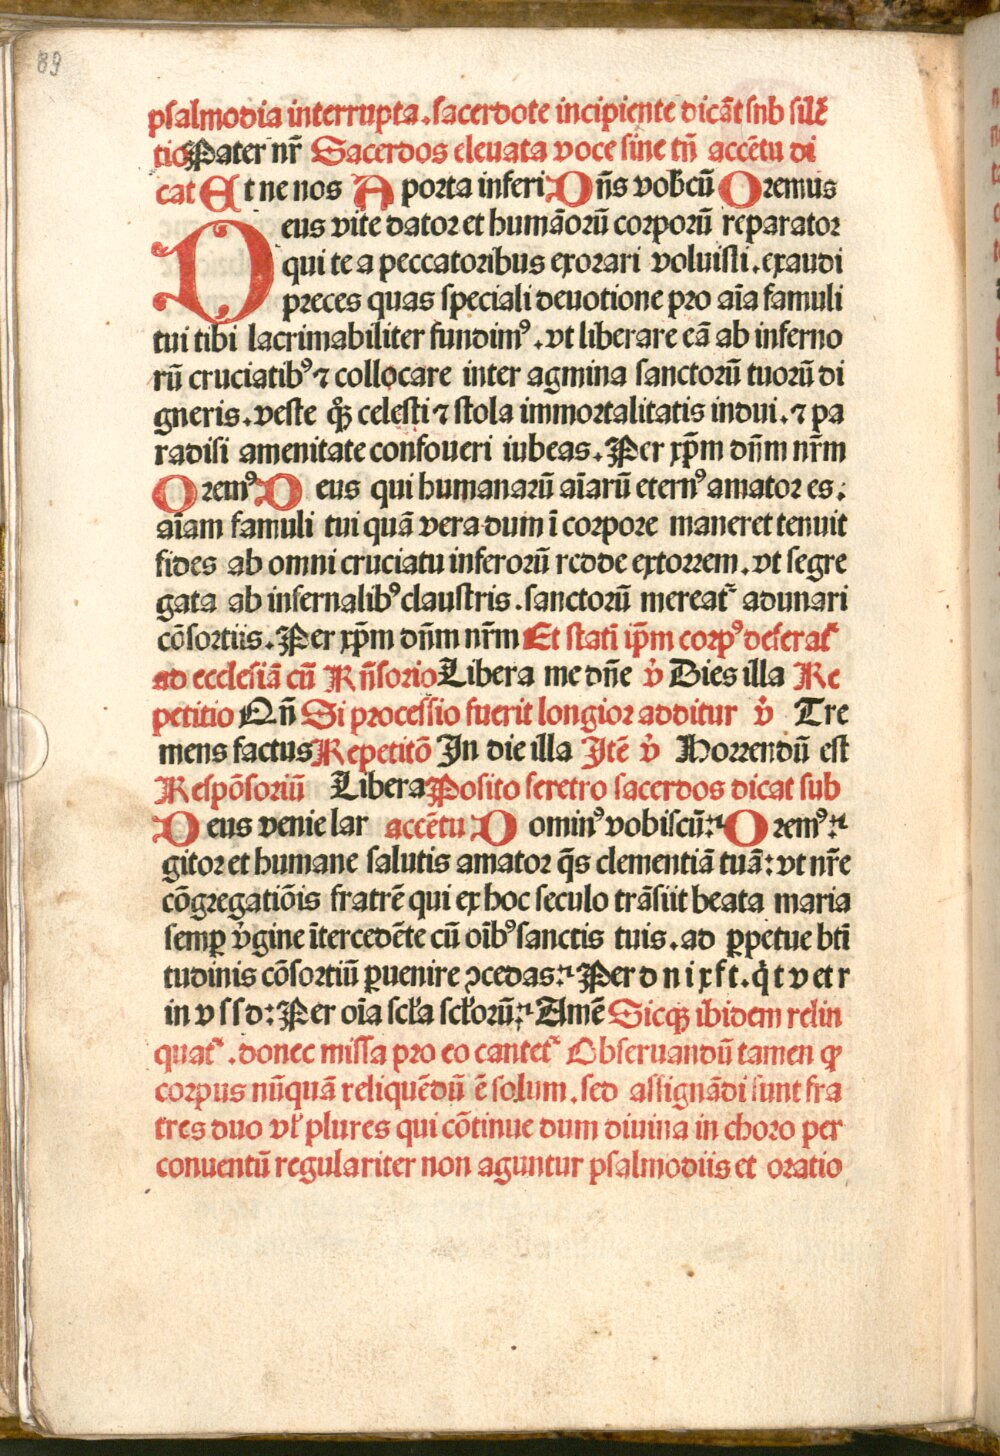 89
psalmodia interrupta.sacerdote incipiente dicãt snb silẽ
tioPater nr̃ Sacerdos eleuata voce sine tñ accẽtu di
cat Et ne nos A porta inferi Dñs vobcũ Oremus
Deus vite dator et humãorũ corporũ reparator
qui te a peccatoribus exorari voluisti.exaudi
preces quas speciali deuotione pro aĩa famuli
tui tibi lacrimabiliter fundimꝰ.vt liberare eã ab inferno
rũ cruciatibꝰ⁊ collocare inter agmina sanctorũ tuorũ di
gneris.veste q̃ꝫ celesti ⁊ stola immortalitatis indui.⁊ pa
radisi amenitate confoueri iubeas.Per xp̃m dñm nr̃m
Oremꝰ Deus qui humanarũ aĩarũ eternꝰ amator es:
aĩam famuli tui quã vera dum ĩ corpore maneret tenuit
fides ab omni cruciatu inferorũ redde extorrem.vt segre
gata ab infernalibꝰ claustris.sanctorũ mereat᷑ adunari
cõsortiis.Per xp̃m dñm nr̃m Et statĩ ip̃m corpꝰ deferat᷑
ad ecclesiã cũ Rñsorio Libera me dñe v̾ Dies illa Re
petitio Qñ Si processio fuerit longior additur v̾ Tre
mens factus Repetitõ In die illa Itẽ v̾ Horrendũ est
Respõsoriũ Libera Posito feretro sacerdos dicat sub
Deus venie lar accẽtu Dominꝰ vobiscũ: Oremꝰ:
gitor et humane salutis amator q̃s clementiã tuã:vt nr̃e
cõgregatiõis fratrẽ qui ex hoc seculo trãsiit beata maria
semꝑ v̾gine ĩtercedẽte cũ oĩbꝰ sanctis tuis.ad ꝑpetue bti̇̃
tudinis cõsortiũ ꝑuenire ꝯcedas: Per d n i xf t.q̃ t v et r
in v s s d:Per oĩa scl̃a scl̃orũ: Amẽ Sicqꝫ ibidem relin
quat᷑.donec missa pro eo cantet᷑ Obseruandũ tamen ꝙ
corpus nũquã reliquẽdũ ẽ solum.sed assignãdi sunt fra
tres duo vl̃ plures qui cõtinue dum diuina in choro per
conuentũ regulariter non aguntur psalmodiis et oratio